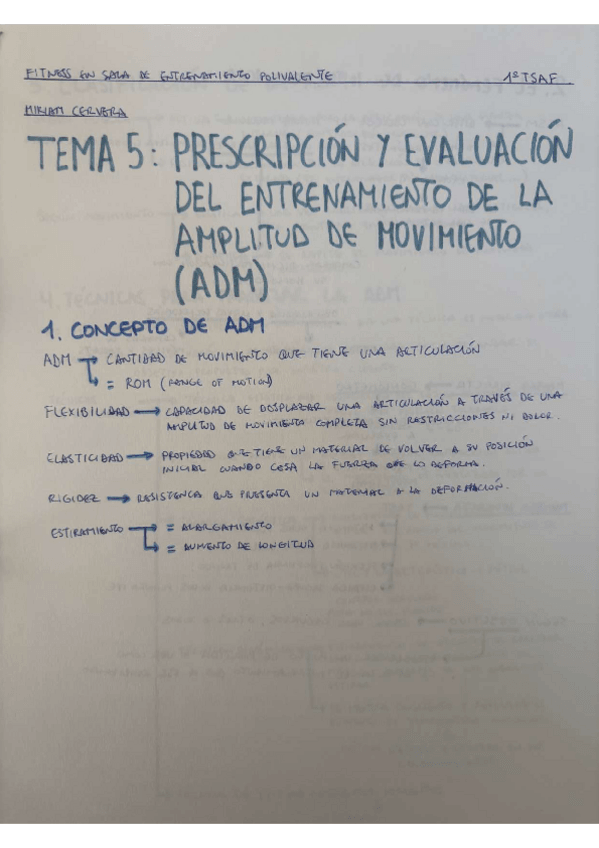 FITNESS EN SALA DE ENTRENAMIENTO POLIVALENTE 1ºTSAF
MIRIAM CERVERA
TEMA 5: PRESCRIPCIÓN Y EVALUACIÓN
DEL ENTRENAMIENTO DE LA
AMPLITUD DE MOVIMIENTO
(ADM)
1. CONCEPTO DE ADM
ADM → CANTIDAD DE MOVIMIENTO QUE TIENE UNA ARTICULACIÓN
↳ = ROM (RANGE OF MOTION)
FLEXIBILIDAD → CAPACIDAD DE DESPLAZAR UNA ARTICULACIÓN A TRAVÉS DE UNA
AMPLITUD DE MOVIMIENTO COMPLETA SIN RESTRICCIONES NI DOLOR.
ELASTICIDAD → PROPIEDAD QUE TIENE UN MATERIAL DE VOLVER A SU POSICIÓN
INICIAL CUANDO CESA LA FUERZA QUE LO DEFORMA.
RIGIDEZ → RESISTENCIA QUE PRESENTA UN MATERIAL A LA DEFORMACIÓN.
ESTIRAMIENTO → = ALARGAMIENTO
↳ = AUMENTO DE LONGITUD